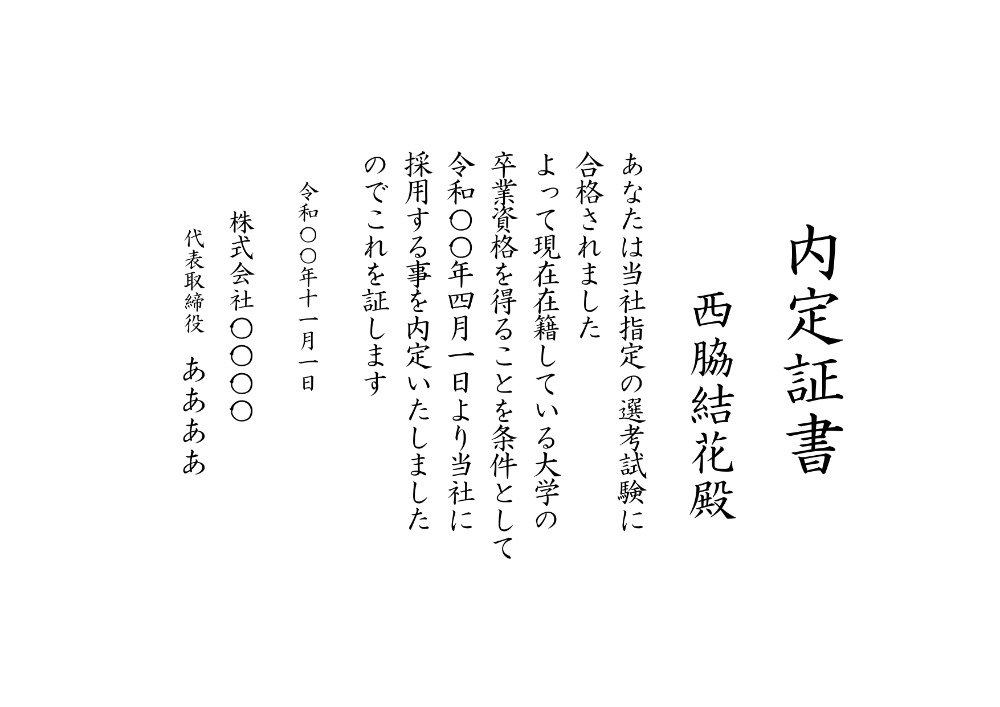 内定証書
西脇結花殿
あなたは当社指定の選考試験に
合格されました
よって現在在籍している大学の
卒業資格を得ることを条件として
令和〇〇年四月一日より当社に
採用する事を内定いたしました
のでこれを証します
令和〇〇年十一月一日
株式会社〇〇〇〇
代表取締役 ああああ